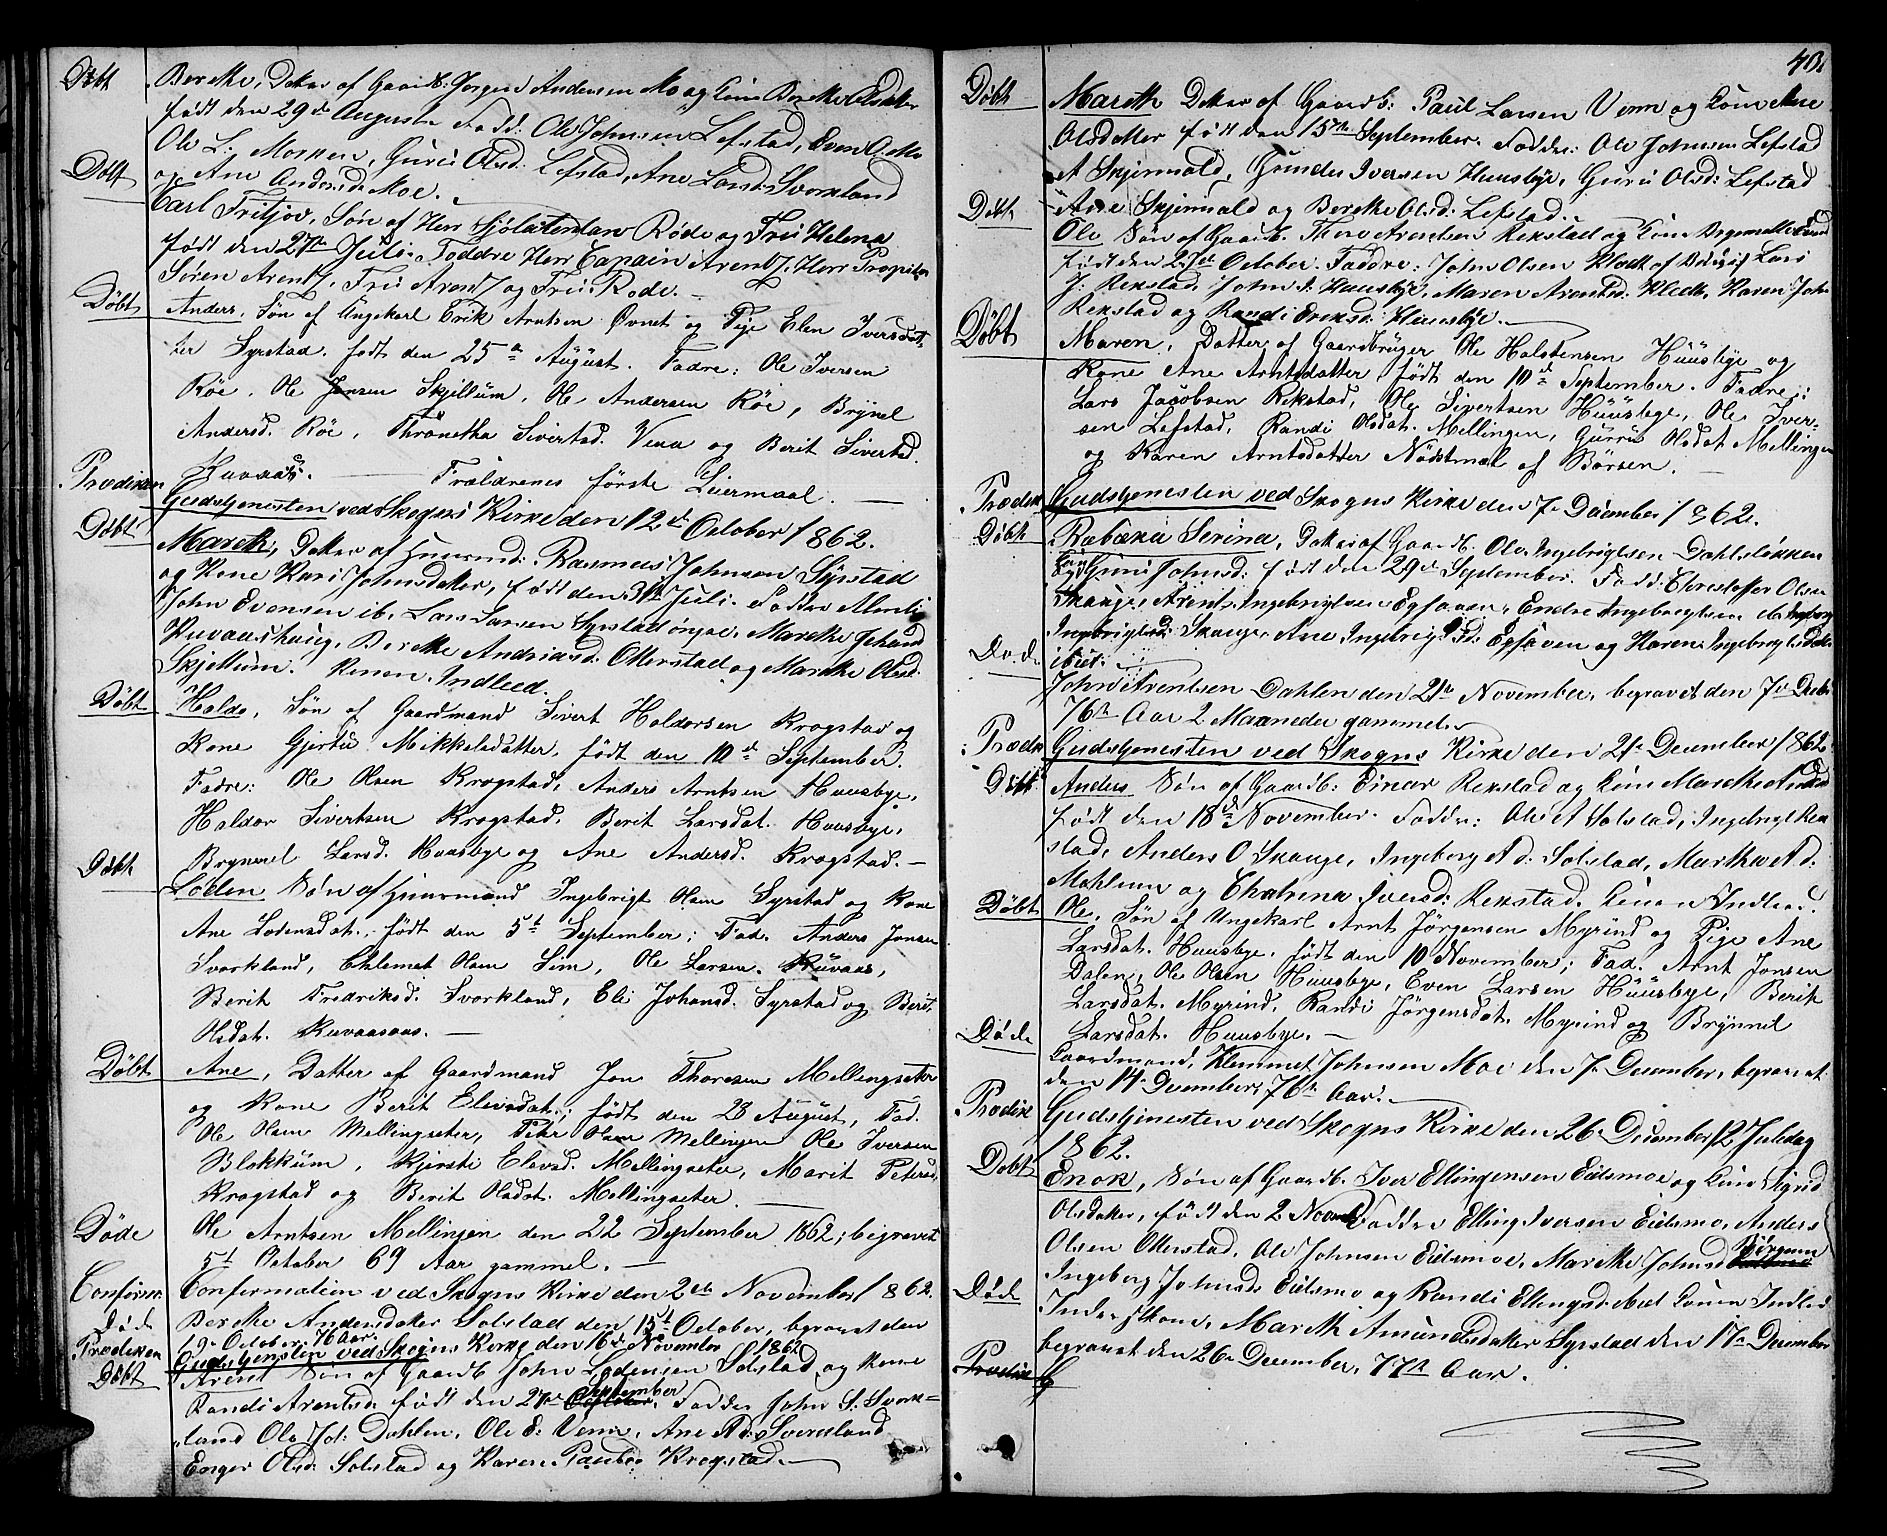 Døbt Berethe, Dotter af Gaardb: Jørgen Andersen Mo og Kone Berethe Olsdatter
født den 29de August. Fadd: Ole Johnsen Lefstad, Even O. Mo
Ole L. Morken, Guru Olsd: Lefstad, Ane Larsd: Svorkland
og Ane Andersd: Moe.
Døbt Carl Fritjov, Søn af Herr Røde og Fru Helena
født den 27de Juli. Faddre Herr Captain Arentz, Herr
Søren Arentz, Fru Arentz og Fru Rode.
Døbt Anders, Søn af Ungekarl Erik Arntsen Øvnet og Pige Elen Iversdat-
ter Syrstad. født den 25de August. Fadre: Ole Iversen
Röe, Ole Jonsen Skjillum, Ole Andersen Röe, Brynel
Andersd. Röe, Thronetha Sivertsd. Venn og Berit Sivertsd.
Forældrenes förste Leiermaal.
Prædiken Gudstjenesten ved Skogns Kirke den 12te October 1862.
Døbt Mareth, Dotter af Huusmd: Rasmus Johnsen Syrstad
og Kone Kari Johnsdatter, født den 31te Juli. Faddre
John Evensen ib. Lars Larsen Syrstadöyae. Marethe Johansd
Kuvaashaug, Berethe Andriasd: Otterstad og Marethe Olsd.
Skjellum. Konen Indleed.
Døbt Haldo, Søn af Gaardmand Sivert Haldorsen Krogstad og
Kone Gjertru Mikkelsdatter, født den 10de September.
Fadre: Ole Olsen Krogstad, Anders Arntsen Huusbye,
Haldor Sivertsen Krogstad, Berit Larsdat. Huusbye,
Brynnel Larsd. Huusbye og Ane Andersd. Krogstad.
Døbt Loden Søn af Huusmand Ingebrigt Olsen Syrstad og Kone
Ane Lodensdat.; født den 5te September; Fad. Anders Jonsen
Svorkland, Chlemet Olsen Lim, Ole Larsen Kuvaas,
Berit Fredriksd. Svorkland, Eli Johansd. Syrstad og Berit
Olsdat. Kuvaasaas.
Døbt Ane, Datter af Gaardmand Jon Thoresen Mellingseter
og Kone Berit Elevsdat.; født den 28 August, Fad.
Ole Olsen Mellingseter, Peter Olsen Mellingen Ole Iversen
Blokkum, Kjersti Elevsd. Mellingseter, Marit Petersd.
Krogstad og Berit Olsdat. Mellingseter.
Døde Ole Arntsen Mellingen den 22 September 1862; begravet
5te October 69 Aar gammel.
Confirm. Confirmation ved Skogns Kirke den 2den November 1862.
Døde Berethe Andersdatter Solstad den 15de October, begravet den
19de October, 76 Aar.
Prædiken Gudstjensten ved Skogns Kirke den 16de November 1862
Døbt Arent Søn af Gaardb John Lodensen Solstad og Kone
Randi Arentsd: født den 27de September. Faddre John S. Svork-
land Ole Joh: Dahlen, Ole E: Venn, Ane Ad: Svorkland
Enger Olsd: Solstad og Karen Paulsd: Krogstad.
40.
Døbt Mareth Dotter af Gaardb: Paul Larsen Venn og Kone Ane
Olsdatter født den 15de September. Faddre: Ole Johnsen Lefstad
A Skjenvald, Gunder Iversen Huusbye, Guru Olsd: Lefstad
Ane Skjenvald og Berethe Olsd: Lefstad.
Døbt Ole Søn af Gaardb. Thore Arentsen Rekstad og Kone
født den 27de October. Faddre: John Olsen Klæth af Børsen Lars
J: Rekstad, John d: Huusbye, Maren Arentsd: Klæth, Karen John
Rekstad og Randi Eriksd: Huusbye.
Døbt Maren, Datter af Gaardbruger Ole Halstensen Huusbye og
Kone Ane Arntsdatter, født den 10de September. Fadre:
Lars Jacobsen Rekstad, Ole Sivertsen Huusbye, Ole Iver-
sen Lefstad, Randi Olsdat. Mellingen, Gurru Olsdat Mellingen
og Karen Arntsdatter Nödstmæl af Børsen.
Prædik Gudstjenesten ved Skogns Kirke den 7de December 1862.
Døbt Rebæka Serina, Dotter af Gaardb. Ole Ingebrigtsen Dahlsløkken
Kone Guru Johnsd: født den 29de September. Fadd: Christoffer Olsen
Skauge, Arent Ingebrigtsen Egsaaen, Endre Ingebrigtsen ib. Ingeborg
Ingebrigtsd: Skauge, Ane Ingebrigtsd: Egsaaen og Karen Ingebrigtsdatter
ibid:
Døde John Arentsen Dahlen den 21de November, begravet den 7de Decbr
76de Aar 2 Maaneder gammel.
Prædik Gudstjenesten ved Skogns Kirke den 21de December 1862
Døbt Anders Søn af Gaardb: Einar Rekstad og Kone Marethe Andersd
født den 18de November. Faddre: Ole A Solstad, Ingebrigt Rek
stad, Anders O Skauge, Ingeborg A d: Solstad, Marthe A d:
Mohleen og Chatrina Iversd: Rekstad. Konen Indleed.
Døbt Ole, Søn af Ungekarl Arnt Jörgensen Myrind og Pige Ane
Larsdat. Huusbye, født den 10 November; Fad. Arnt Jonsen
Dalen, Ole Olsen Huusbye, Even Larsen Huusbye, Berit
Larsdat. Myrind, Randi Jörgensdat. Myrind og Brynnil
Larsdat. Huusbye.
Døde Gaardmand, Klemmet Johnsen Moe den 7de December, begravet
den 14de December, 76de Aar.
Prædike Gudstjenesten ved Skogns Kirke den 26de December, 2 Juledag
1862.
Døbt Enok, Søn af Gaardb. Iver Ellingensen Eidsmoe og Kone Sigrid
Olsdatter, født den 2 Novemb Faddre Elling Iversen Eidsmo, Anders
Olsen Otterstad, Ole Johnsen Eidsmoe, Marethe Johnsd Børsum
Ingeborg Johnsd: Eidsmo og Randi Ellingsd: ibid Konen Indled
Døde Inderstkone, Mareth Amundsdatter Syrstad den 17de December
begravet den 26de December, 77de Aar.
Prædike G